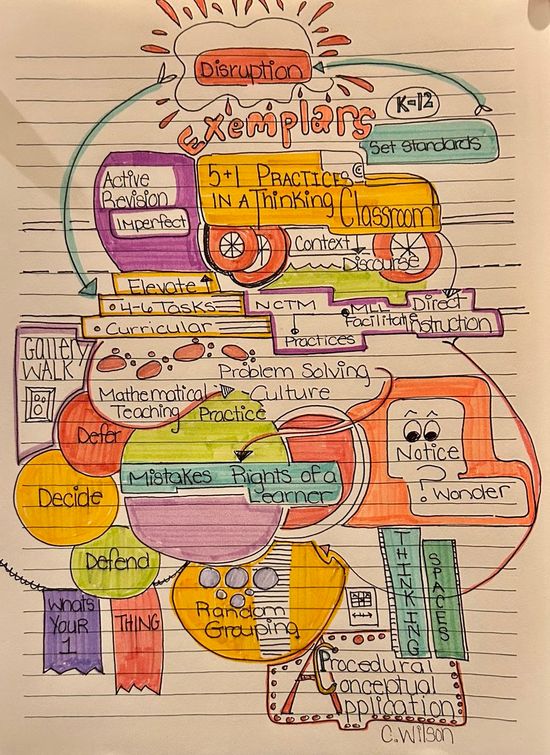 Disruption
Exemplars
K-12
Set Standards
Active
Revision
Imperfect
5+1 Practices ©
in a Thinking
Classroom
Context
Discourse
Elevate
4-6 Tasks
Curricular
NCTM
Practices
MLL
Facilitating
Direct
Instruction
Gallery
Walk
Problem Solving
Mathematical
Teaching Practice
Culture
Defer
Decide
Defend
Mistakes Rights of a
Learner
Notice
?
! Wonder
What's
Your
1
Thing
Random
Grouping
THINKING
SPACES
Procedural
Conceptual
Application
C. Wilson